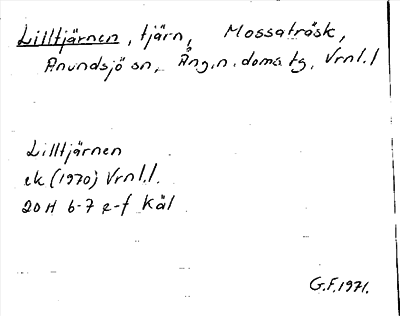 Lilltjärnen, tjärn, Mossaträsk,
Anundsjö sn, Ång.n. doms tg, Vrnl.l
Lilltjärnen
ek (1970) Vrnl.l.
20H 6-7 e-f Käl
G.F. 1971.